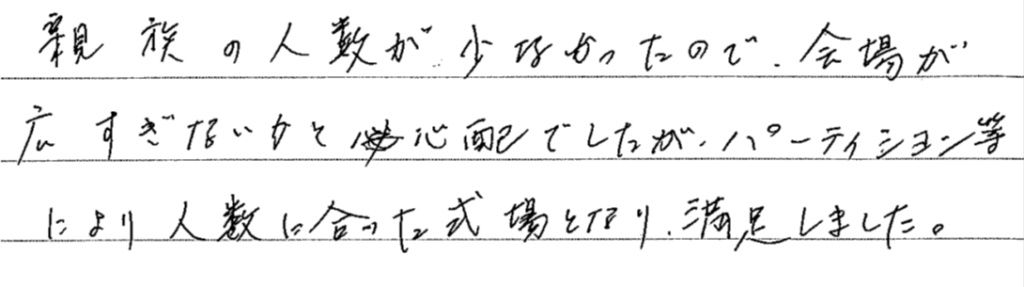 親族の人数が少なかったので、会場が
広すぎないかと心配でしたが、パーティション等
により人数に合った式場となり、満足しました。